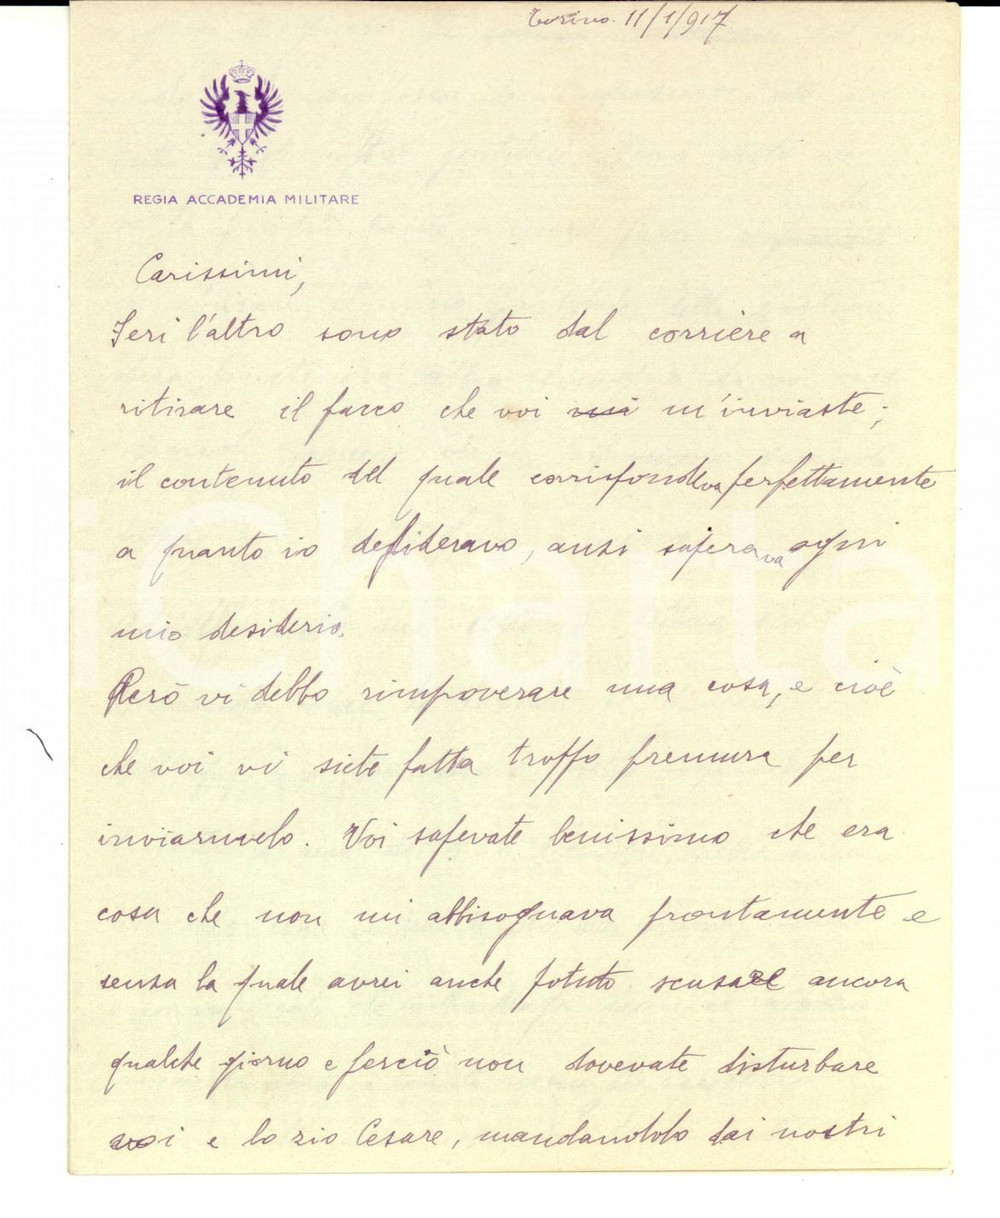 Torino 11/1/917
REGIA ACCADEMIA MILITARE
Carissimi,
Ieri l'altro sono stato dal corriere a
ritirare il pacco che voi m'inviaste;
il contenuto del quale corrispondeva perfettamente
a quanto io desideravo, anzi superava ogni
mio desiderio.
Però vi debbo rimpoverare una cosa, e cioè
che voi vi siete fatta troppo premura per
inviarmelo. Voi sapevate benissimo che era
cosa che non mi abbisognava prontamente e
senza la quale avrei anche potuto scusare ancora
qualche giorno e perciò non dovevate disturbare
voi e lo zio Cesare, mandandolo dai nostri
iCharta